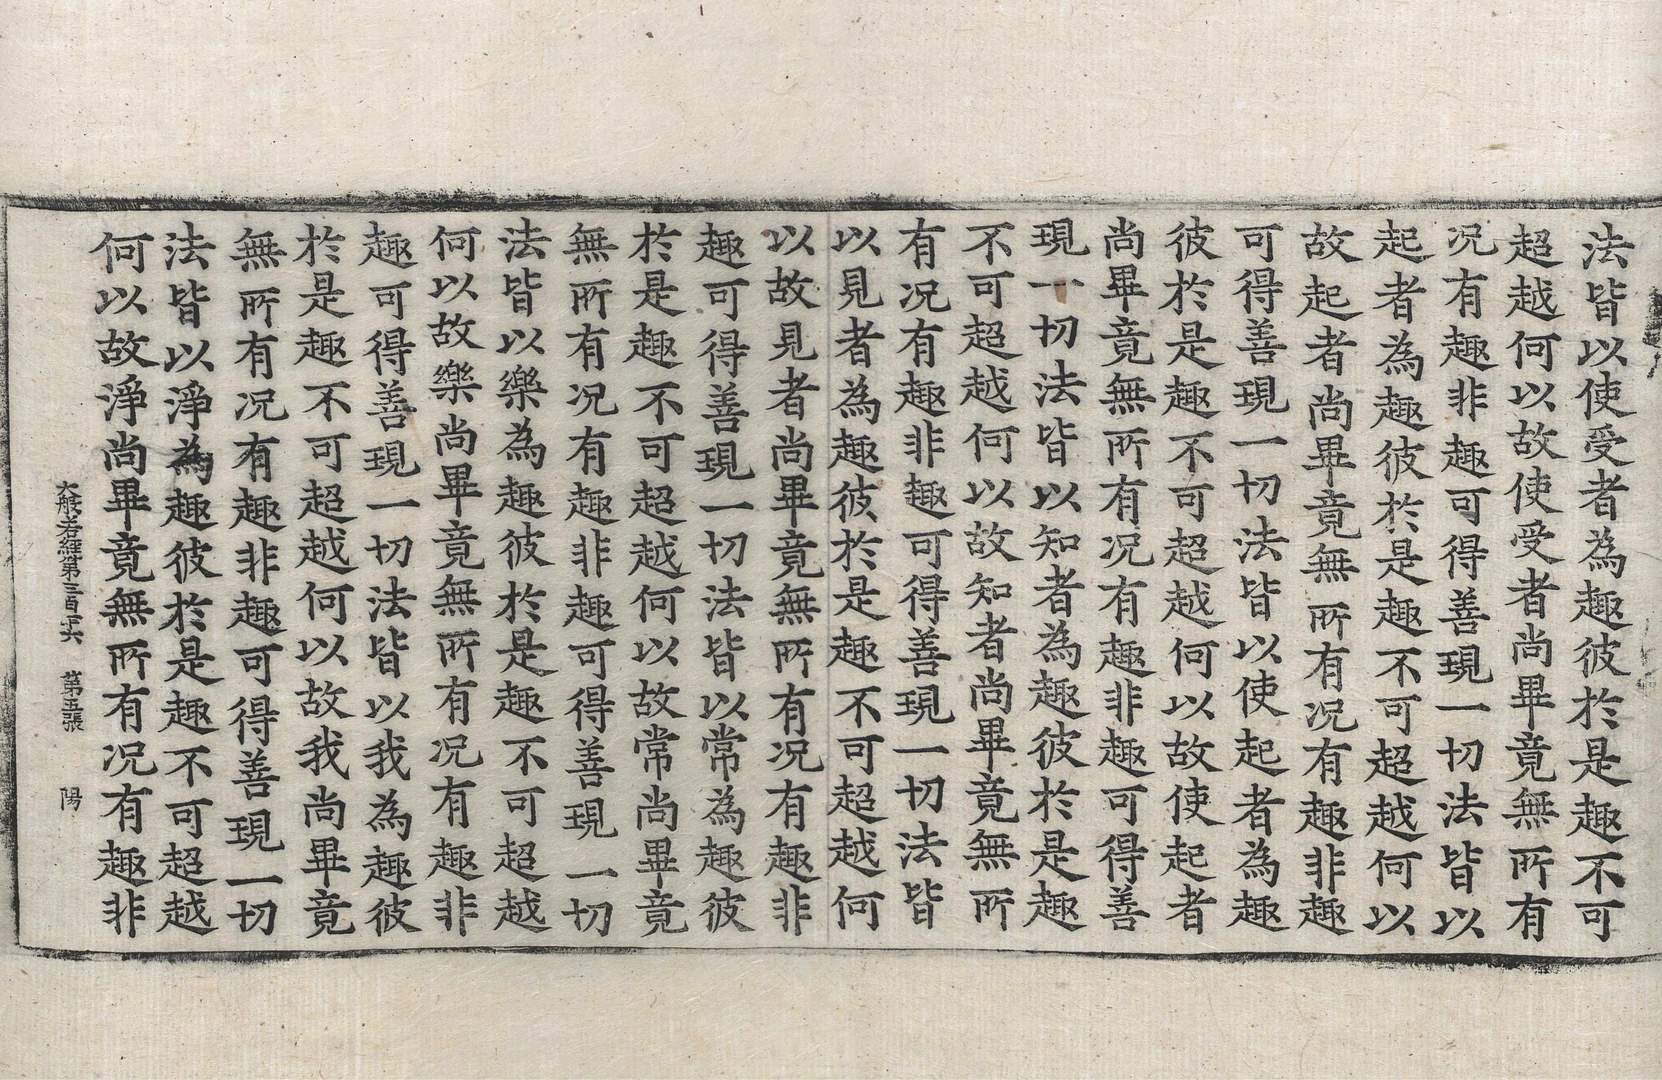 法皆以使受者為趣彼於是趣不可
超越何以故使受者尚畢竟無所有
况有趣非趣可得善現一切法皆以
起者為趣彼於是趣不可超越何以
故起者尚畢竟無所有况有趣非趣
可得善現一切法皆以使起者為趣
彼於是趣不可超越何以故使起者
尚畢竟無所有况有趣非趣可得善
現一切法皆以知者為趣彼於是趣
不可超越何以故知者尚畢竟無所
有况有趣非趣可得善現一切法皆
以見者為趣彼於是趣不可超越何
以故見者尚畢竟無所有况有趣非
趣可得善現一切法皆以常為趣彼
於是趣不可超越何以故常尚畢竟
無所有况有趣非趣可得善現一切
法皆以樂為趣彼於是趣不可超越
何以故樂尚畢竟無所有况有趣非
趣可得善現一切法皆以我為趣彼
於是趣不可超越何以故我尚畢竟
無所有况有趣非趣可得善現一切
法皆以淨為趣彼於是趣不可超越
何以故淨尚畢竟無所有况有趣非
大般若經第三百十六 第五張 陽